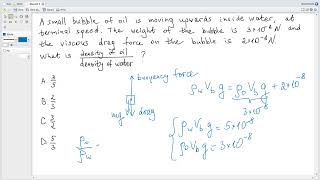 A small bubble of oil is moving upwards inside water, at
terminal speed. The weight of the bubble is 3×10⁻⁸ N and
the viscous drag force on the bubble is 2×10⁻⁸ N.
What is density of oil / density of water ?
A. 3/5
B. 2/3
C. 3/2
D. 5/3
buoyancy force
mg drag
ρw Vb g = ρo Vb g + 2×10⁻⁸
ρw Vb g = 5×10⁻⁸
ρo Vb g = 3×10⁻⁸
ρo/ρw =